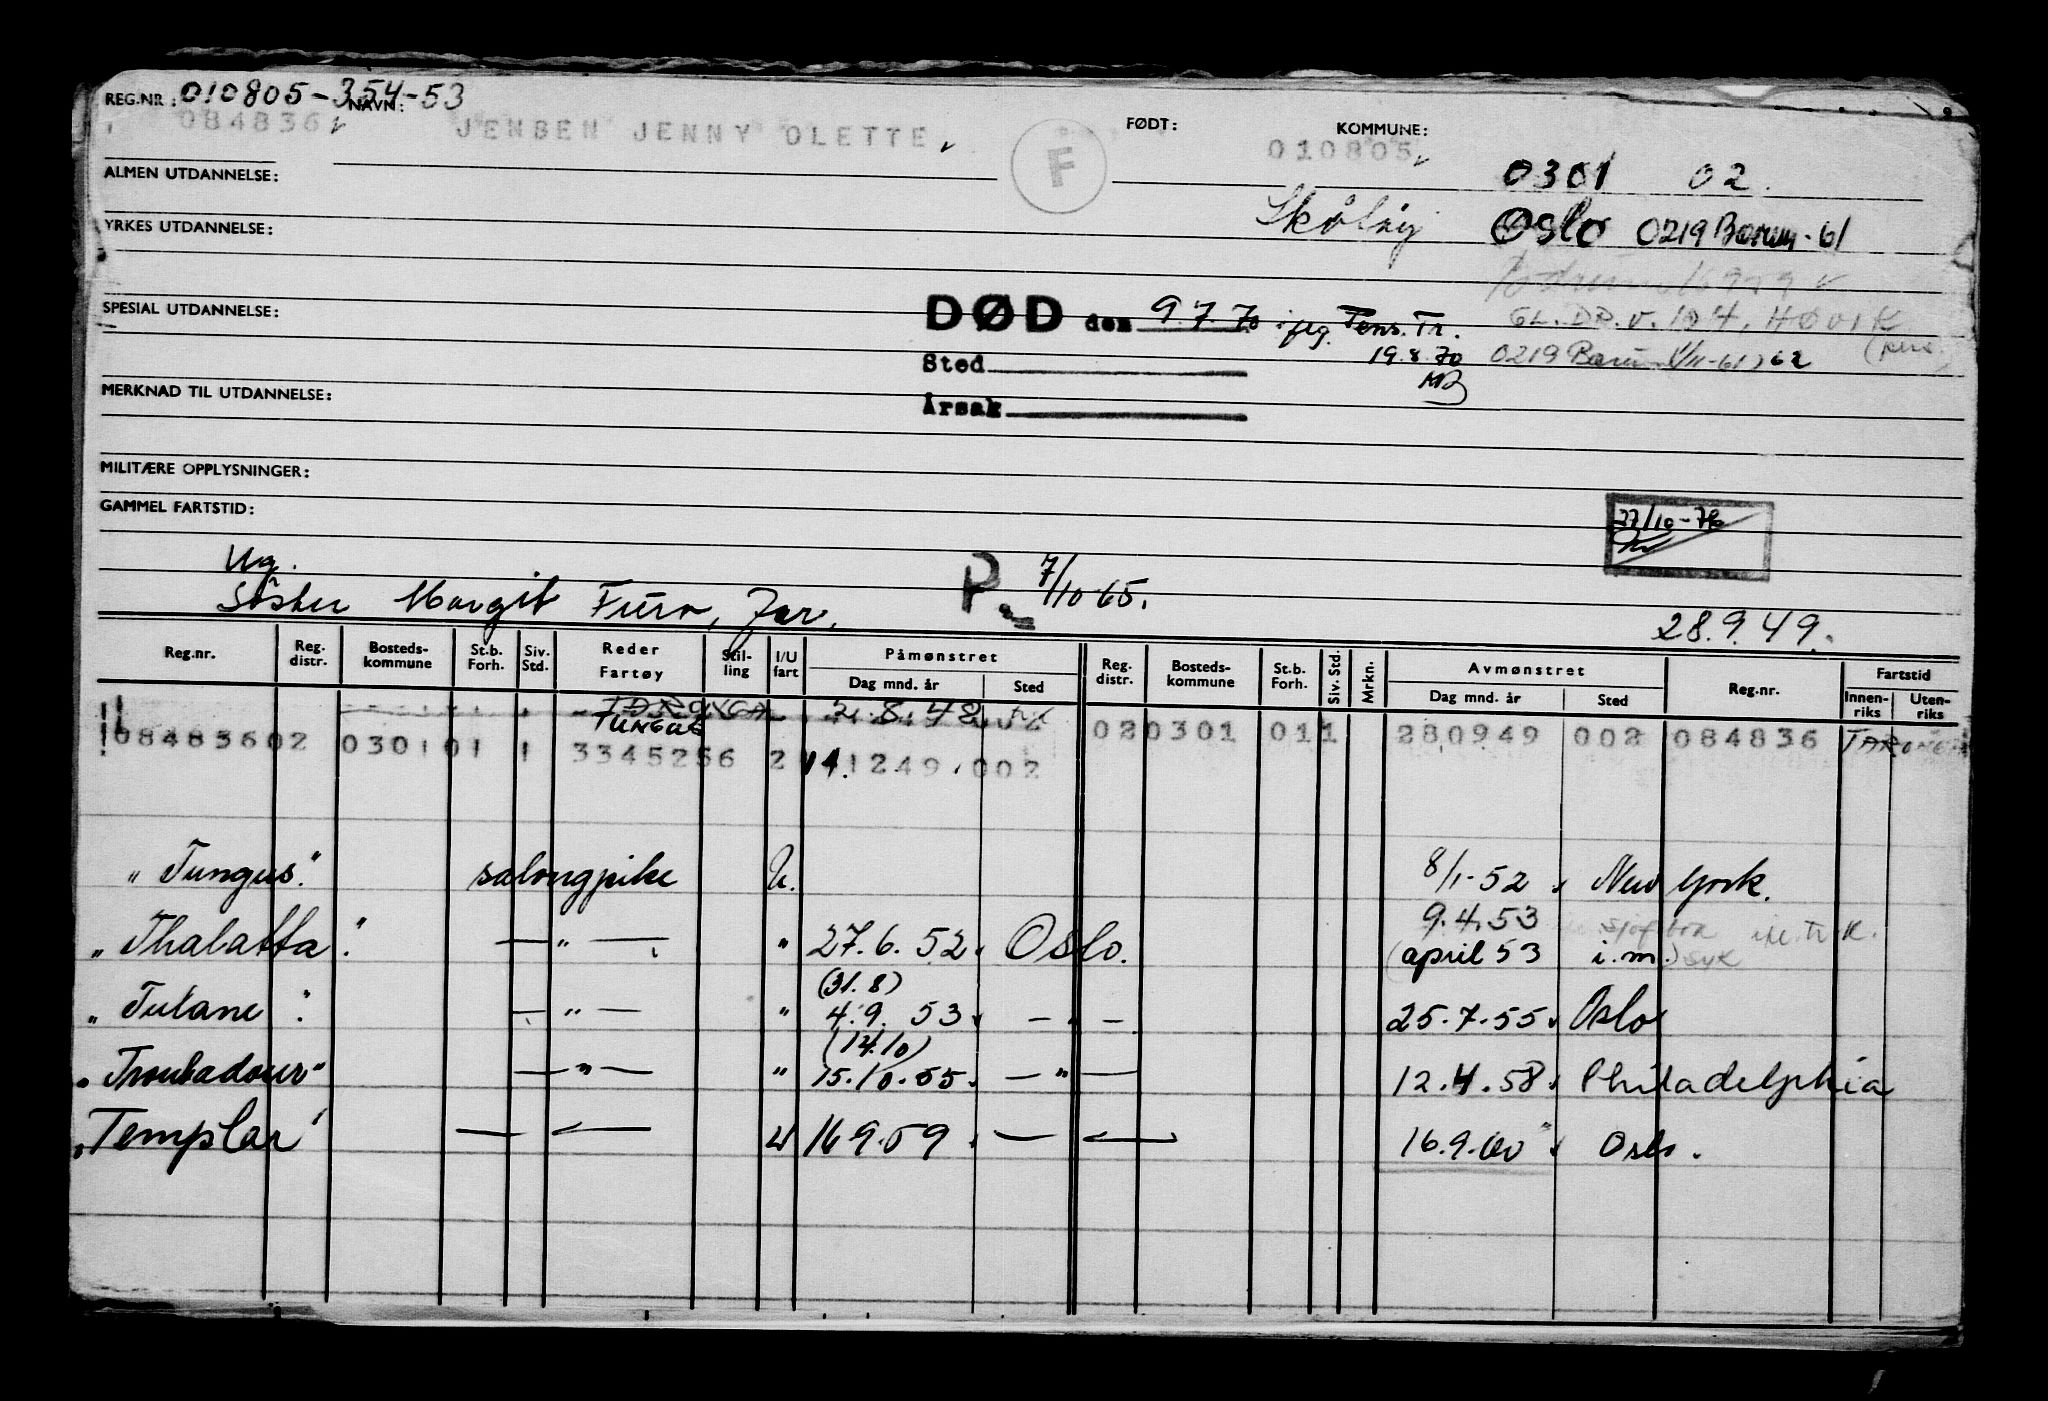 REG.NR.: 010805-354-53 NAVN: FØDT: KOMMUNE:
084836 JENSEN JENNY OLETTE F 010805
ALMEN UTDANNELSE: 0301 02.
YRKES UTDANNELSE: Oslo 0219 Bærum-61
SPESIAL UTDANNELSE: DØD den 9.7.70 Tr. GL. DR. V. 104, HØVIK
Sted 19.8.70 0219 62
MB
MERKNAD TIL UTDANNELSE: Årsak
MILITÆRE OPPLYSNINGER:
GAMMEL FARTSTID: 27/10-76
Ug. P. 7/10 65.
Søster Margit Furo, Jar. 28.9.49.
Reg.nr. Reg. distr. Bosteds-kommune St.b. Forh. Siv. Std. Reder Fartøy Stil-ling I/U fart Påmønstret Dag mnd. år Sted Reg. distr. Bosteds-kommune St.b. Forh. Siv. Std. Mrkn. Avmønstret Dag mnd. år Sted Reg.nr. Fartstid Innen-riks Uten-riks
TARONGA 2.8.48
TUNGUS 02 0301 01 1 280949 002 084836 TARONGA
084836 02 0301 01 1 3345256 2 141249 002
"Tungus" salongpike U. 8/1-52 New York.
9.4.53
"Thalatta" — " — " 27.6.52 Oslo. (april 53 i.m.) syk
(31.8)
"Tulane" — " — " 4.9.53 — " — 25.7.55 Oslo
(14.10)
"Troubadour" — " — " 15.10.55 — " — 12.4.58 Philadelphia
"Templar" — — U 16.9.59 — — 16.9.60 Oslo.